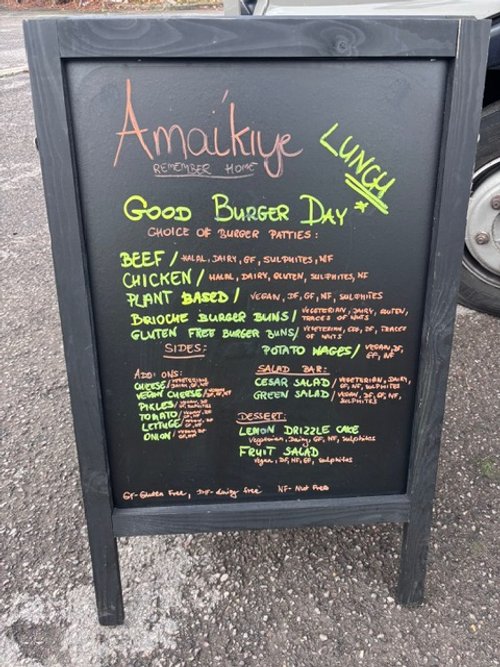 Amaíkiye
REMEMBER HOME
LUNCH
GOOD BURGER DAY
CHOICE OF BURGER PATTIES:
BEEF / HALAL, DAIRY, GF, SULPHITES, NF
CHICKEN / HALAL, DAIRY, GLUTEN, SULPHITES, NF
PLANT BASED / VEGAN, DF, GF, NF, SULPHITES
BRIOCHE BURGER BUNS / VEGETERIAN, DAIRY, GLUTEN,
TRACES OF NUTS
GLUTEN FREE BURGER BUNS / VEGETERIAN, EGG, DF, TRACES
OF NUTS
SIDES:
POTATO WAGES / VEGAN, DF,
GF, NF
ADD ONS:
CHEESE / VEGETERIAN
VEGAN CHEESE /
PIKLES /
TOMATO /
LETTUCE /
ONION /
SALAD BAR:
CESAR SALAD / VEGETERIAN, DAIRY,
GF, NF, SULPHITES
GREEN SALAD / VEGAN, DF, GF, NF,
SULPHITES
DESSERT:
LEMON DRIZZLE CAKE
Vegeterian, Dairy, GF, NF, Sulphites
FRUIT SALAD
Vegan, DF, NF, GF, Sulphites
GF-Gluten Free, DF-dairy free NF-Nut Free